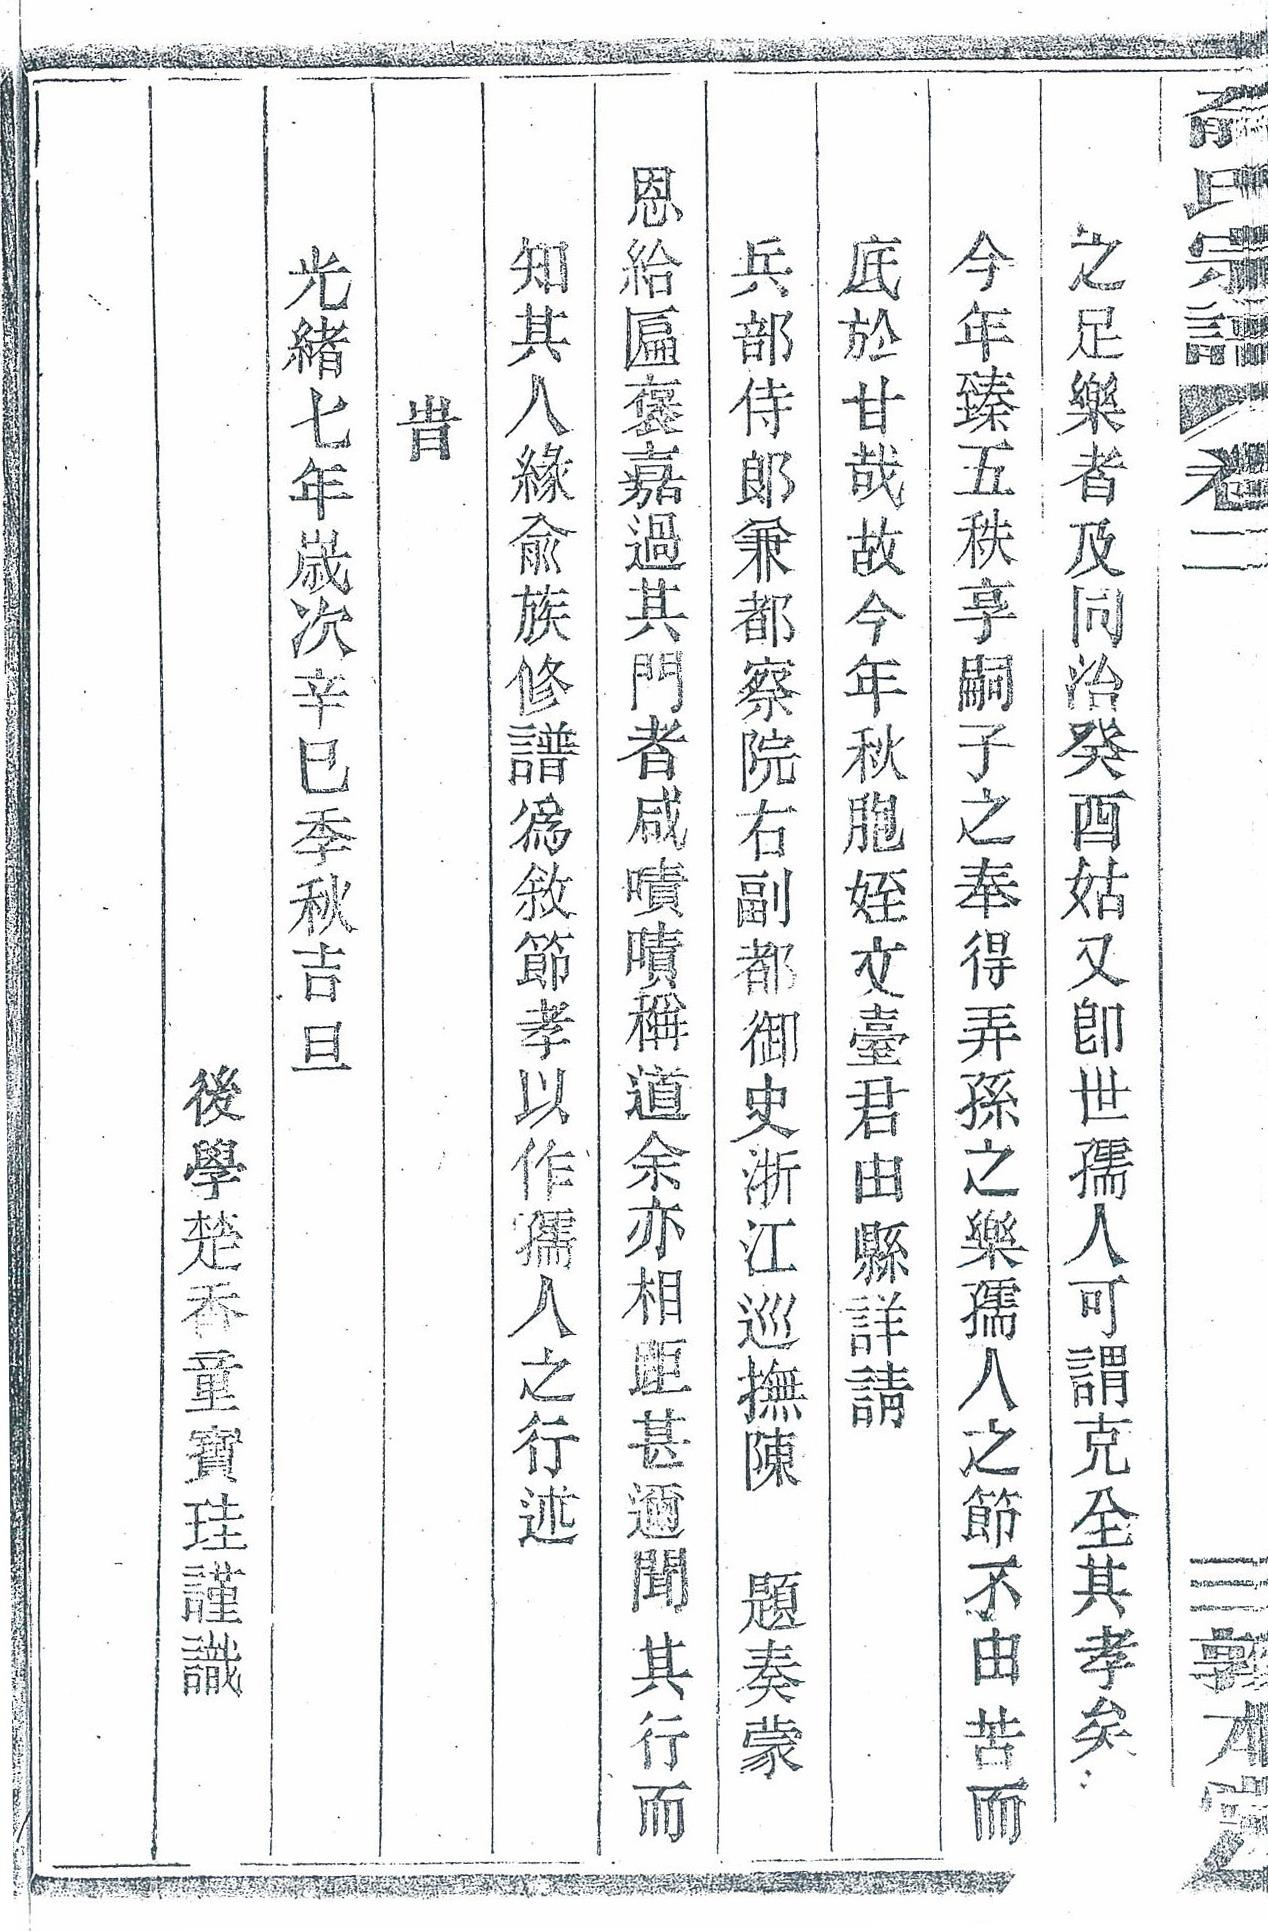 俞氏宗譜 卷二 三 敦本堂
之足樂者及同治癸酉姑又卽世孺人可謂克全其孝矣
今年臻五秩享嗣子之奉得弄孫之樂孺人之節不由苦而
底於甘哉故今年秋胞姪文臺君由縣詳請
兵部侍郎兼都察院右副都御史浙江巡撫陳 題奏蒙
恩給匾褒嘉過其門者咸嘖嘖稱道余亦相距甚邇聞其行而
知其人緣俞族修譜爲敘節孝以作孺人之行述
旹
光緒七年歲次辛巳季秋吉旦
後學楚香童寶珪謹識